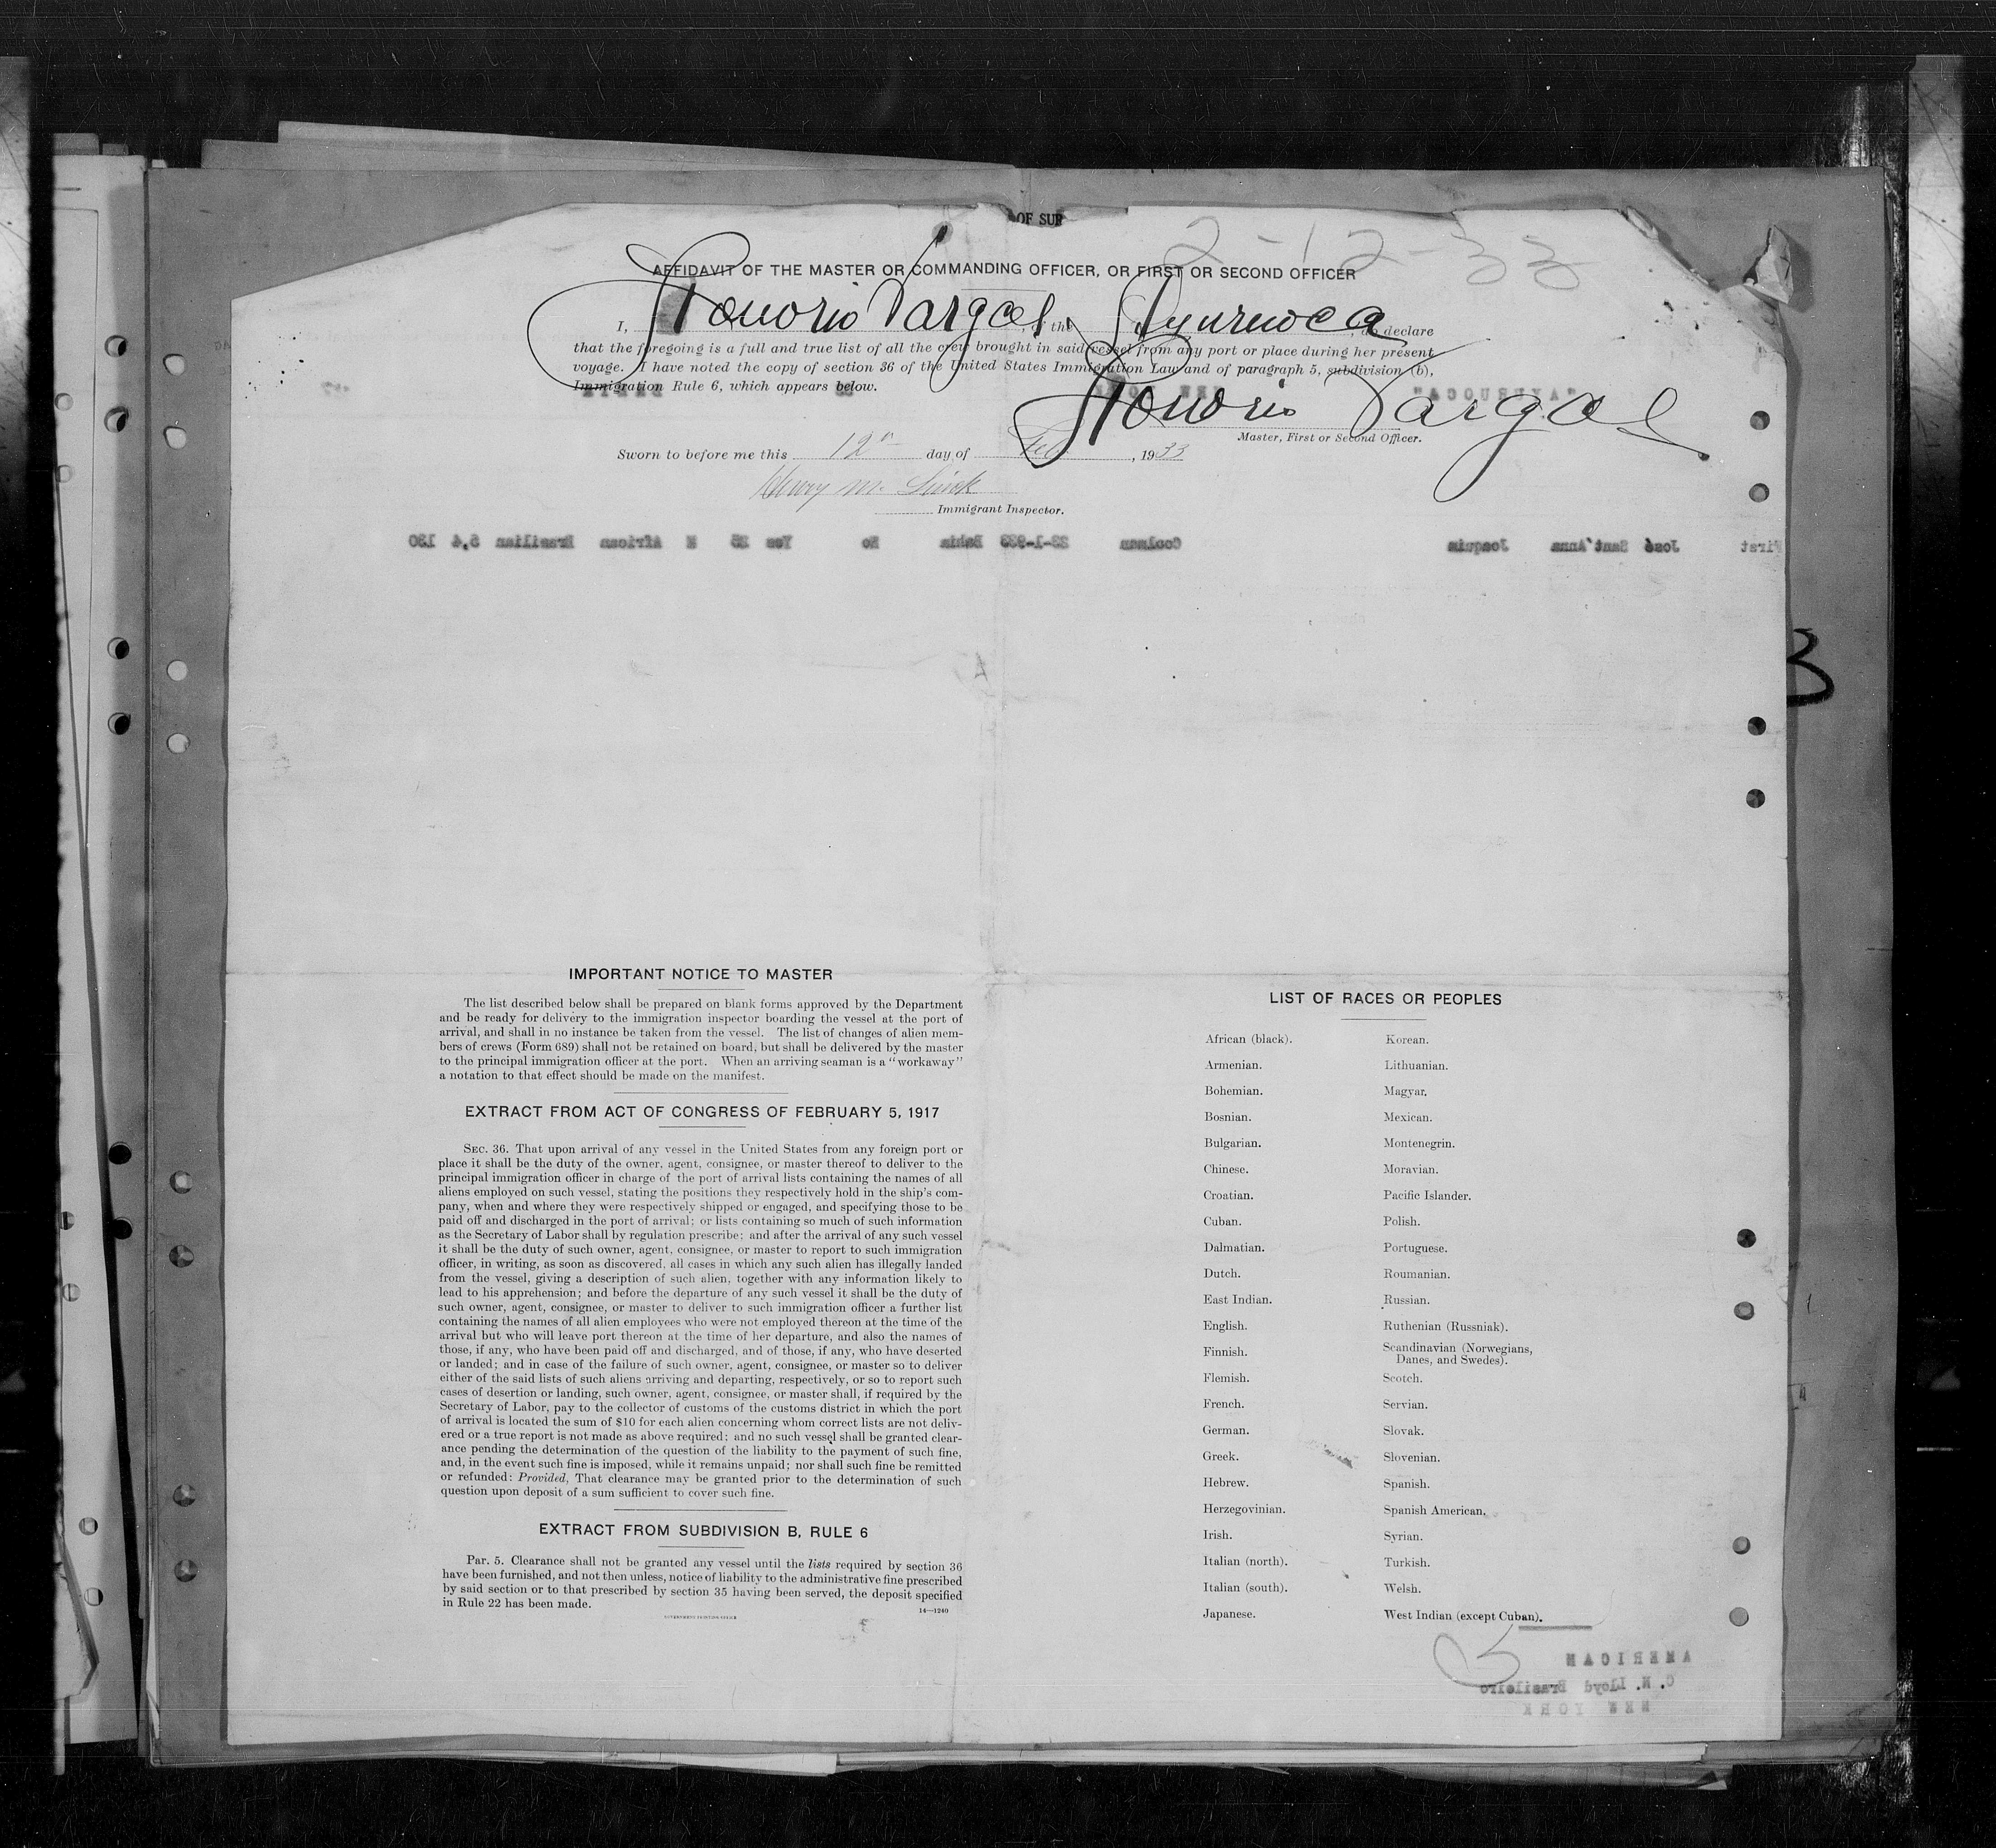 OF SUR
2-12-33
AFFIDAVIT OF THE MASTER OR COMMANDING OFFICER, OR FIRST OR SECOND OFFICER
I, Honorio Vargas, of the Ayuruoca, do declare
that the foregoing is a full and true list of all the crew brought in said vessel from any port or place during her present
voyage. I have noted the copy of section 36 of the United States Immigration Law and of paragraph 5, subdivision (b),
Immigration Rule 6, which appears below.
"AYURUOCA" NEW
Honorio Vargas
Master, First or Second Officer.
Sworn to before me this 12th day of Feb, 1933
Henry M.
Immigrant Inspector.
First José Sant'Anna Joaquim Coolman 23-1-933 Bahia No Yes 25 M African Brazilian 5,4 130
B
IMPORTANT NOTICE TO MASTER
The list described below shall be prepared on blank forms approved by the Department
and be ready for delivery to the immigration inspector boarding the vessel at the port of
arrival, and shall in no instance be taken from the vessel. The list of changes of alien mem-
bers of crews (Form 689) shall not be retained on board, but shall be delivered by the master
to the principal immigration officer at the port. When an arriving seaman is a "workaway"
a notation to that effect should be made on the manifest.
EXTRACT FROM ACT OF CONGRESS OF FEBRUARY 5, 1917
SEC. 36. That upon arrival of any vessel in the United States from any foreign port or
place it shall be the duty of the owner, agent, consignee, or master thereof to deliver to the
principal immigration officer in charge of the port of arrival lists containing the names of all
aliens employed on such vessel, stating the positions they respectively hold in the ship's com-
pany, when and where they were respectively shipped or engaged, and specifying those to be
paid off and discharged in the port of arrival; or lists containing so much of such information
as the Secretary of Labor shall by regulation prescribe; and after the arrival of any such vessel
it shall be the duty of such owner, agent, consignee, or master to report to such immigration
officer, in writing, as soon as discovered, all cases in which any such alien has illegally landed
from the vessel, giving a description of such alien, together with any information likely to
lead to his apprehension; and before the departure of any such vessel it shall be the duty of
such owner, agent, consignee, or master to deliver to such immigration officer a further list
containing the names of all alien employees who were not employed thereon at the time of the
arrival but who will leave port thereon at the time of her departure, and also the names of
those, if any, who have been paid off and discharged, and of those, if any, who have deserted
or landed; and in case of the failure of such owner, agent, consignee, or master so to deliver
either of the said lists of such aliens arriving and departing, respectively, or so to report such
cases of desertion or landing, such owner, agent, consignee, or master shall, if required by the
Secretary of Labor, pay to the collector of customs of the customs district in which the port
of arrival is located the sum of $10 for each alien concerning whom correct lists are not deliv-
ered or a true report is not made as above required; and no such vessel shall be granted clear-
ance pending the determination of the question of the liability to the payment of such fine,
and, in the event such fine is imposed, while it remains unpaid; nor shall such fine be remitted
or refunded: Provided, That clearance may be granted prior to the determination of such
question upon deposit of a sum sufficient to cover such fine.
EXTRACT FROM SUBDIVISION B, RULE 6
Par. 5. Clearance shall not be granted any vessel until the lists required by section 36
have been furnished, and not then unless, notice of liability to the administrative fine prescribed
by said section or to that prescribed by section 35 having been served, the deposit specified
in Rule 22 has been made.
14—1240
GOVERNMENT PRINTING OFFICE
LIST OF RACES OR PEOPLES
African (black). Korean.
Armenian. Lithuanian.
Bohemian. Magyar.
Bosnian. Mexican.
Bulgarian. Montenegrin.
Chinese. Moravian.
Croatian. Pacific Islander.
Cuban. Polish.
Dalmatian. Portuguese.
Dutch. Roumanian.
East Indian. Russian.
English. Ruthenian (Russniak).
Finnish. Scandinavian (Norwegians,
Danes, and Swedes).
Flemish. Scotch.
French. Servian.
German. Slovak.
Greek. Slovenian.
Hebrew. Spanish.
Herzegovinian. Spanish American.
Irish. Syrian.
Italian (north). Turkish.
Italian (south). Welsh.
Japanese. West Indian (except Cuban).
AMERICAN
C. N. Lloyd Brasileiro
NEW YORK